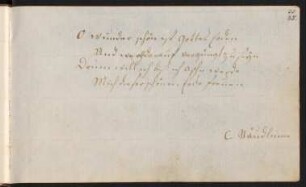 O wunder schön ist Gottes Erden
Und werth darauf vergnügt zu seyn
Drum will ich bis ich Asche werde
Mich dieser schönen Erde freuen.
C. Bäudlinn